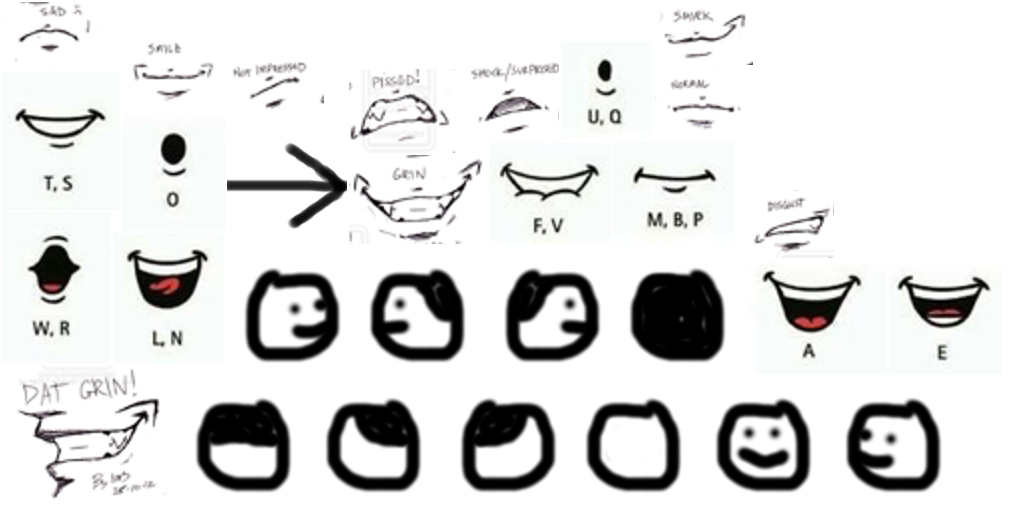 SAD
SMILE
NOT IMPRESSED
PISSED!
SHOCK/SURPRISED
SMIRK
NORMAL
U, Q
T, S
O
GRIN
F, V
M, B, P
DISGUST
W, R
L, N
A
E
DAT GRIN!
By